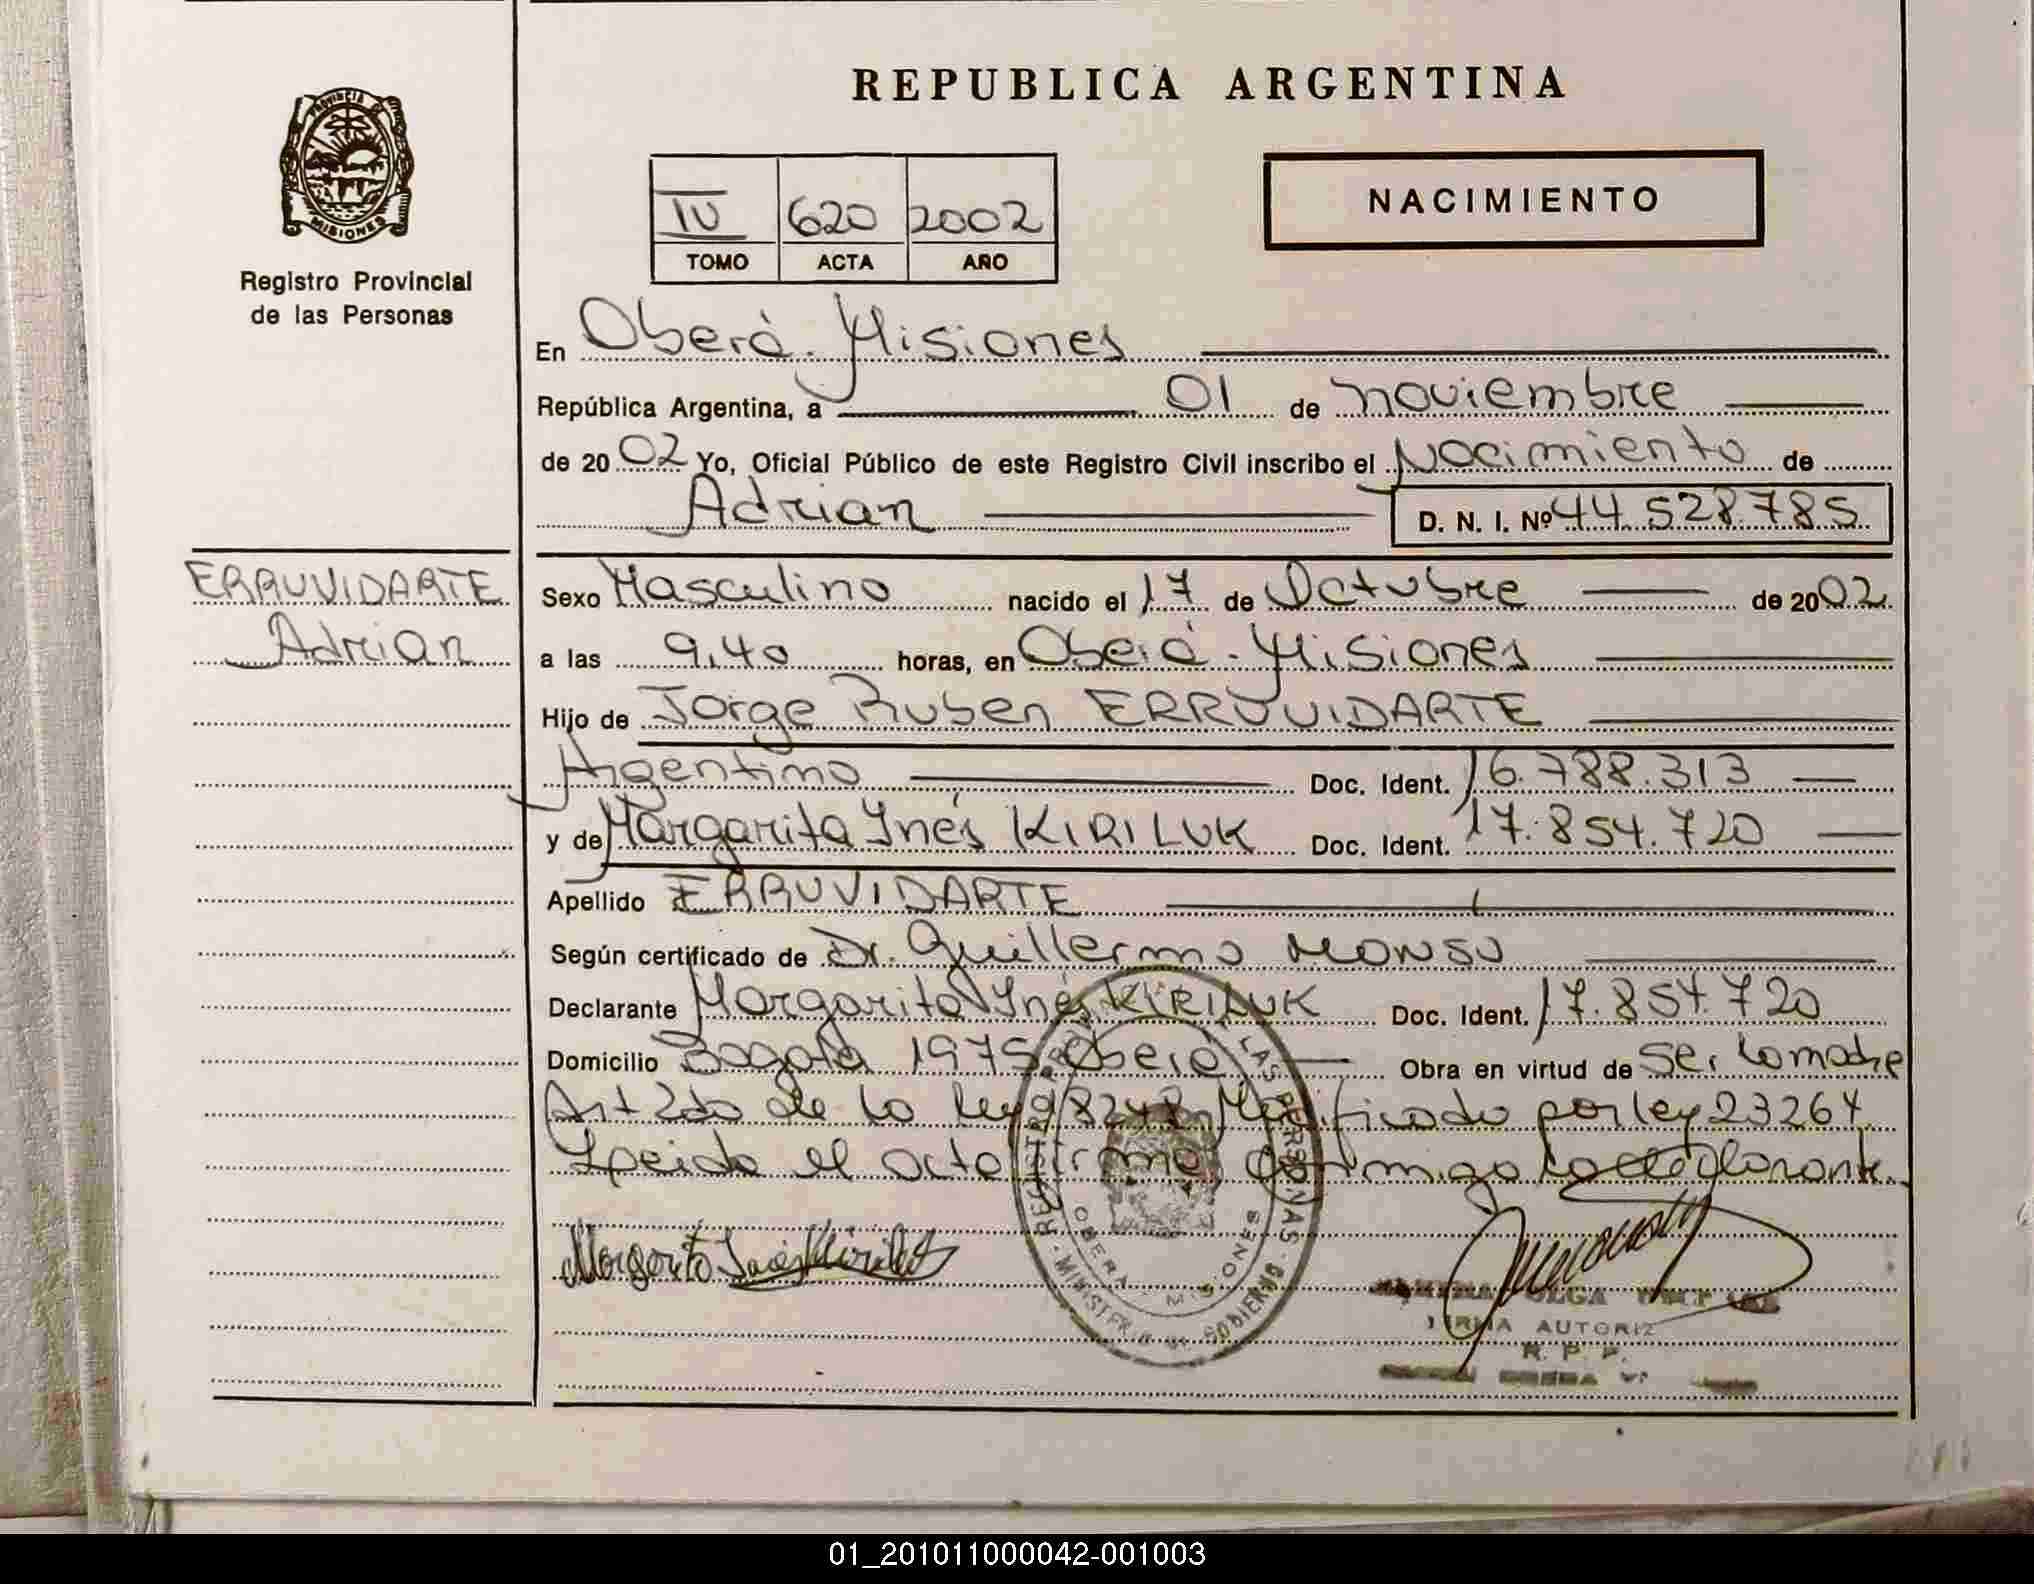 REPUBLICA ARGENTINA
PROVINCIA DE
MISIONES
Registro Provincial
de las Personas
NACIMIENTO
IV 620 2002
TOMO ACTA AÑO
En Oberá - Misiones
República Argentina, a 01 de noviembre
de 2002 Yo, Oficial Público de este Registro Civil inscribo el Nacimiento de
Adrian D. N. I. Nº 44.528.785
ERRUVIDARTE
Adrian
Sexo Masculino nacido el 17 de Octubre de 2002
a las 9,40 horas, en Oberá - Misiones
Hijo de Jorge Ruben ERRUVIDARTE
Argentino Doc. Ident. 16.788.313
y de Margarita Inés KIRILUK Doc. Ident. 17.854.720
Apellido ERRUVIDARTE
Según certificado de Dr. Guillermo MONSU
Declarante Margarita Inés KIRILUK Doc. Ident. 17.854.720
Domicilio Bogotá 1975 Oberá Obra en virtud de ser la madre
Art 2do de la Ley 18248 Modificado por ley 23264
Leida el acta firma conmigo la declarante.
Margarita Inés Kiriluk
OBERA - MISIONES
MINISTERIO DE GOBIERNO
OLGA
FIRMA AUTORIZ
R. P. P.
01_201011000042-001003